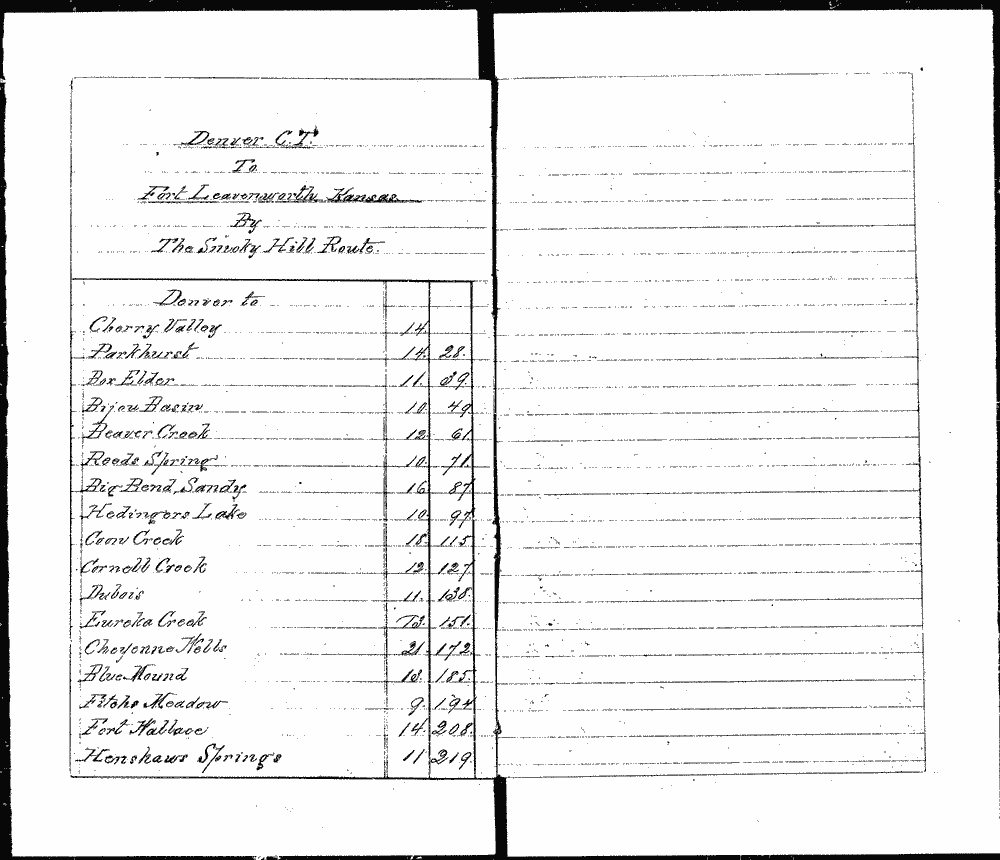 Denver C.T.
To
Fort Leavenworth, Kansas
By
The Smoky Hill Route.
Denver to
Cherry Valley 14.
Parkhurst 14. 28.
Box Elder 11. 39.
Bijou Basin 10. 49.
Beaver Creek 12. 61.
Reeds Spring 10. 71.
Big Bend, Sandy 16. 87.
Hedingers Lake 10. 97.
Coon Creek 18. 115.
Cornell Creek 12. 127.
Dubois 11. 138.
Eureka Creek 13. 151.
Cheyenne Wells 21. 172.
Blue Mound 13. 185.
Fitchs Meadow 9. 194.
Fort Wallace 14. 208.
Henshaws Springs 11 219.